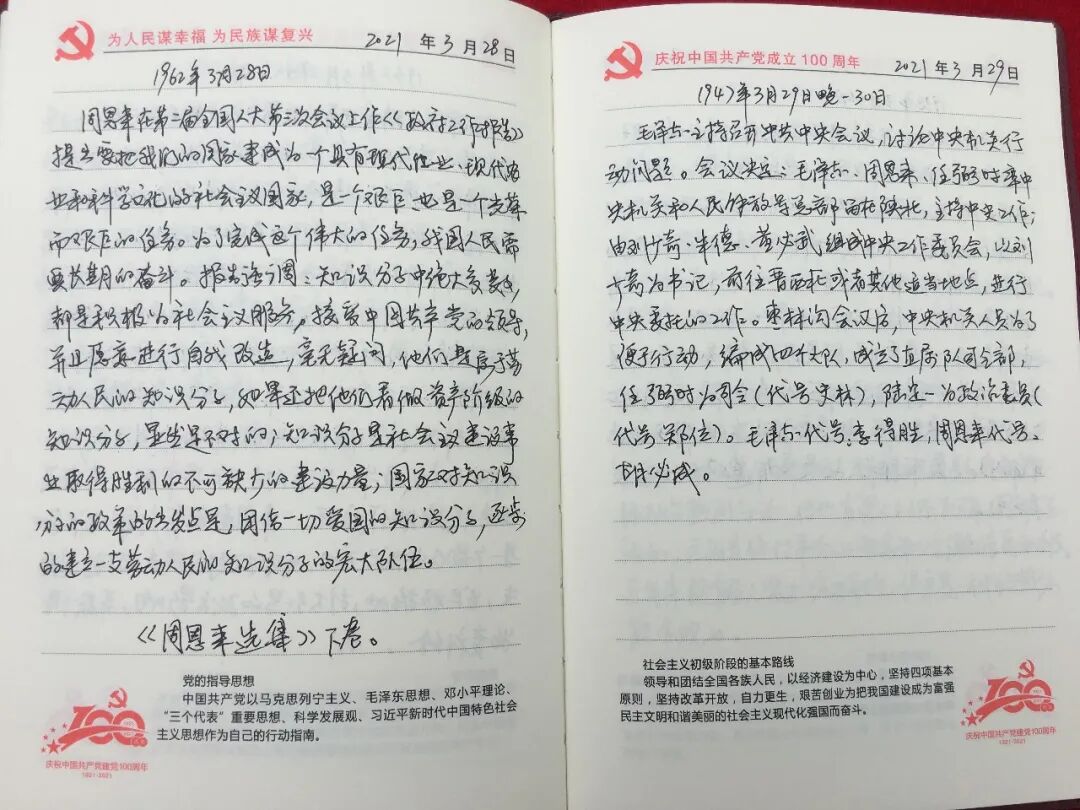 为人民谋幸福 为民族谋复兴
2021 年 3 月 28 日
1962年3月28日
周恩来在第二届全国人大第三次会议上作《政府工作报告》
提出要把我们的国家建成为一个具有现代化工业、现代农
业和科学文化的社会主义国家,是一个艰巨也是一个光荣
而艰巨的任务。为了完成这个伟大的任务,我国人民需
要长期的奋斗。报告强调:知识分子中绝大多数,
都是积极为社会主义服务,接受中国共产党的领导,
并且愿意进行自我改造,毫无疑问,他们是属于劳
动人民的知识分子,如果还把他们看做资产阶级的
知识分子,显然是不对的;知识分子是社会主义建设事
业取得胜利的不可缺少的建设力量;国家对知识
分子的政策的出发点是,团结一切爱国的知识分子,逐步
的建立一支劳动人民的知识分子的宏大队伍。
《周恩来选集》下卷。
党的指导思想
中国共产党以马克思列宁主义、毛泽东思想、邓小平理论、
“三个代表”重要思想、科学发展观、习近平新时代中国特色社会
主义思想作为自己的行动指南。
100
庆祝中国共产党建党100周年
1921-2021
庆祝中国共产党成立 100 周年
2021 年 3 月 29 日
1947年3月29日晚-30日
毛泽东主持召开中共中央会议,讨论中央机关行
动问题。会议决定:毛泽东、周恩来、任弼时率中
央机关和人民解放军总部留在陕北,主持中央工作;
由刘少奇、朱德、董必武组成中央工作委员会,以刘
少奇为书记,前往晋西北或者其他适当地点,进行
中央委托的工作。枣林沟会议后,中央机关人员为了
便于行动,编成四个大队,成立了直属队司令部,
任弼时为司令(代号史林),陆定一为政治委员(
代号郑位)。毛泽东代号:李得胜,周恩来代号、
胡必成。
社会主义初级阶段的基本路线
领导和团结全国各族人民,以经济建设为中心,坚持四项基本
原则,坚持改革开放,自力更生,艰苦创业为把我国建设成为富强
民主文明和谐美丽的社会主义现代化强国而奋斗。
100
庆祝中国共产党建党100周年
1921-2021